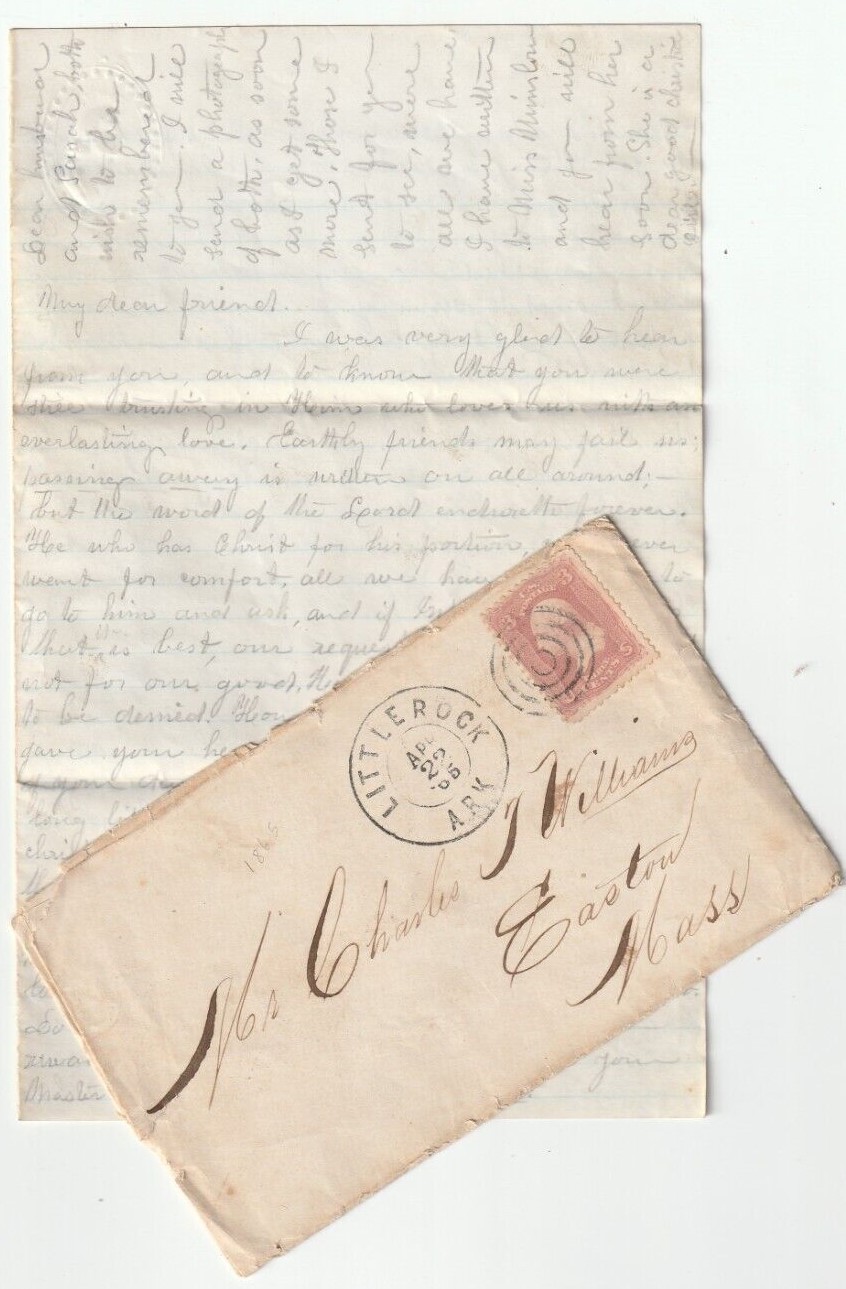 Dear husband
and Susah, both
wish to be
remembered
to you. I will
send a photograph
of both, as soon
as I get some
more. Those I
sent for you
to see, were
all we have.
I have written
to Miss Winslow
and you will
hear from her
soon. She is a
dear good christian
My dear friend.
I was very glad to hear
from you, and to know that you were
still trusting in Him who loves us with an
everlasting love. Earthly friends may fail us;
passing away is written on all around;—
but the word of the Lord endureth forever.
He who has Christ for his portion, ever
want for comfort, all we have to
go to him and ask, and if
that is best, our reque
not for our good,
to be denied. How
gave your he
of your
long
chri
rewa you
Master
LITTLE ROCK
ARK
APR
22
65
3 3
CENTS
1865
Mr Charles T Williams
Easton
Mass